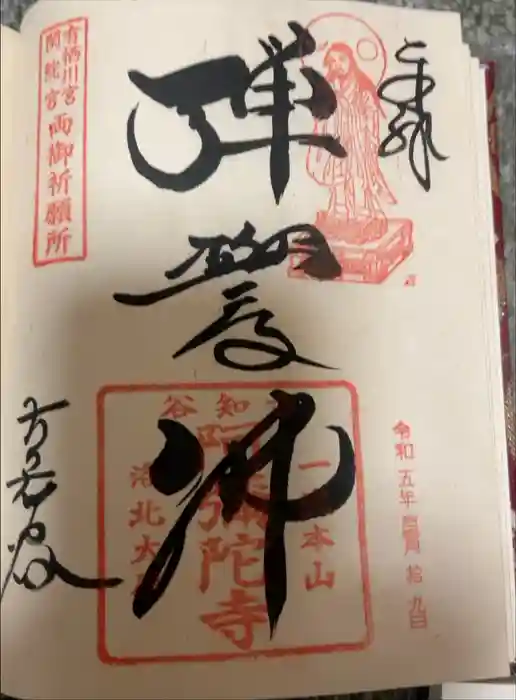 奉拝
弾誓佛
有栖川宮
閑院宮
両御祈願所
古知谷
一流本山
阿弥陀寺
洛北大原
令和五年四月拾九日